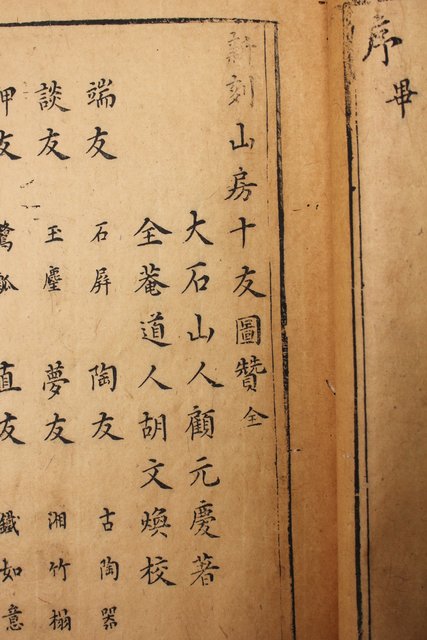 序
畢
新刻山房十友圖贊全
大石山人顧元慶著
全菴道人胡文煥校
端友 石屏 陶友 古陶器
談友 玉麈 夢友 湘竹榻
友 鷺瓢 直友 鐵如意